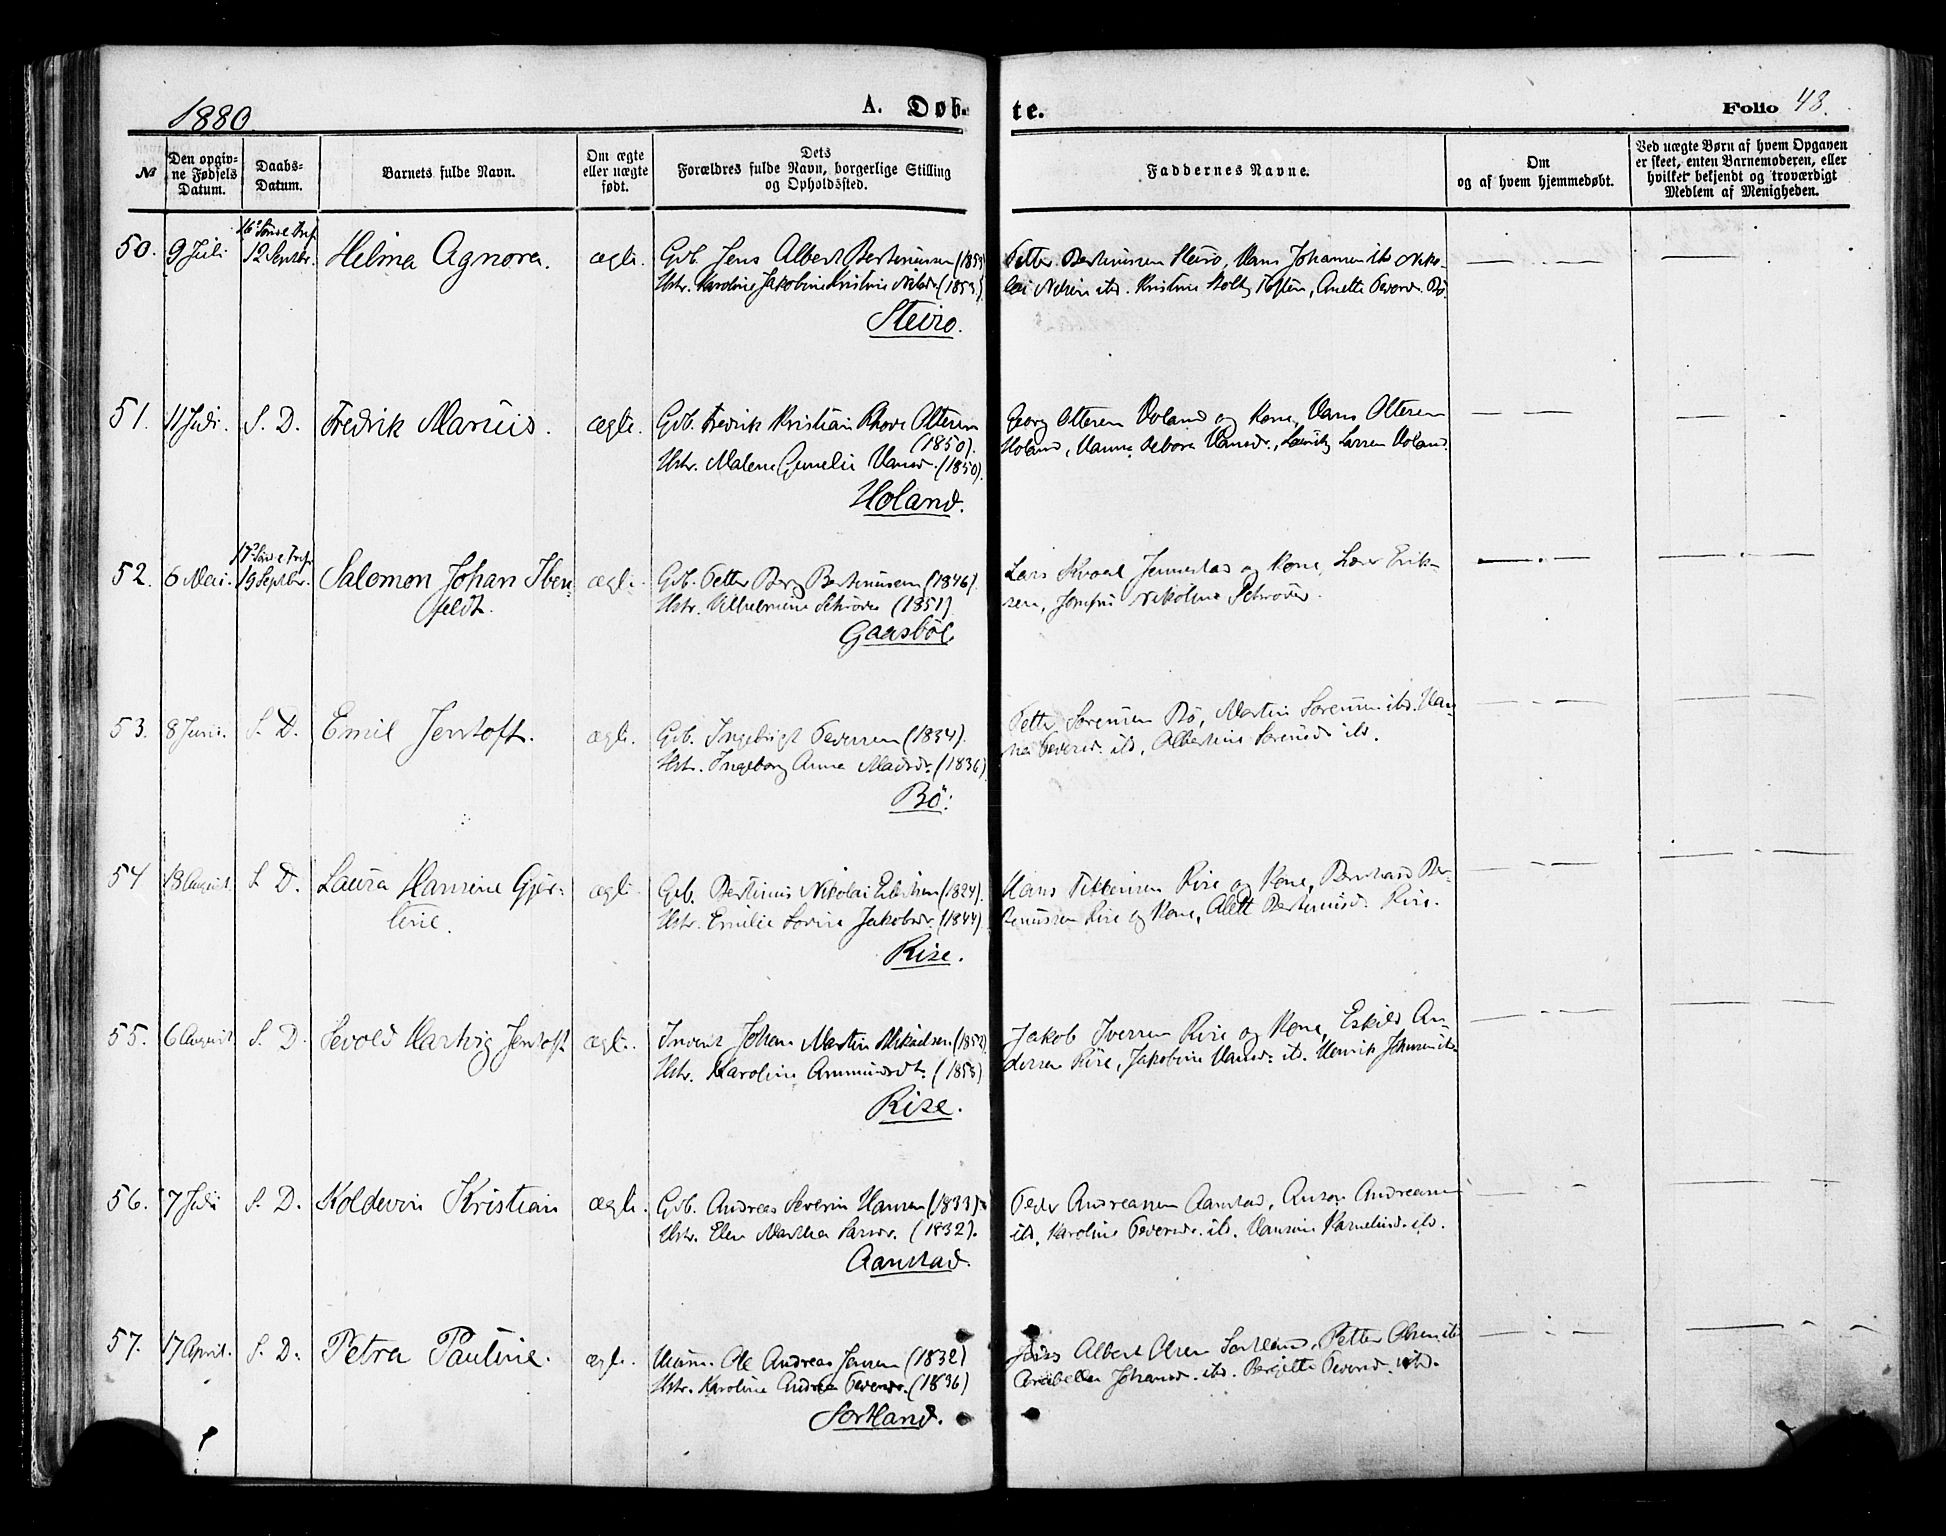 1880. A. Døb-
te. Folio 48.
№
Den opgiv-
ne Fødsels
Datum.
Daabs-
Datum.
Barnets fulde Navn.
Om ægte
eller uægte
født.
Dets
Forældres fulde Navn, borgerlige Stilling
og Opholdssted.
Faddernes Navne.
Om
og af hvem hjemmedøbt.
Ved uægte Børn af hvem Opgaven
er skeet, enten Barnemoderen, eller
hvilket bekjendt og troværdigt
Medlem af Menigheden.
50. 9 Juli 12 Septbr. Helma Agnora. ægte. Gdb. Jens Albert Bertinussen
Hstr. Karoline Jakobine Kristine Nilsdr. (1853)
Steiro.
Petter Bertinussen Steiro, Hans Johansen itd. Niko-
lai Nilsen itd. Kristine Holt, Anette Pedersd. Bø.
51. 11 Juli. S. D. Fredrik Marius. ægte. Gdb. Fredrik Kristian Ottesen
(1850).
Hstr. Malene Hansd. (1850).
Holand.
Georg Ottesen Holand og Kone, Hans Ottesen
Holand, Hanna Debora Hansdr., Lauritz Larsen Holand.
52. 6 Mai. 19 Septbr. Salomon Johan Iben-
feldt. ægte. Gdb. Petter Berg Bertinusen (1846).
Hstr. Vilhelmine Schrøder (1851)
Gaasbøl.
Lars Kvaal Jennestad og Kone, Lærer Erik-
sen, Jomfru Nikoline Schrøder.
53. 8 Juni. S. D. Emil Jentoft. ægte. Gdb. Ingebrigt Pedersen (1834).
Hstr. Ingeborg Anna Madsdr. (1836)
Bø.
Petter Sørensen Bø, Martin Sørensen itd. Han-
na Pedersd. itd, Albertine Sørensd. itd.
54 18 August. S. D. Laura Hansine Gjør-
tine. ægte. Gdb. Bertinus Nikolai (1824).
Hstr. Emilie Lovise Jakobsdr. (1844)
Rise.
Hans Rise og Kone, Bernhard Ber-
tinussen Rise og Kone, Alett Bertinusd. Rise.
55. 6 August S. D. Sevold Hartvig Jentoft ægte. Inderst Johan Martin Mikalsen
Hstr. Karoline Ammundsdt. (1858)
Rise.
Jakob Iversen Rise og Kone, Eskild An-
dersen Rise, Jakobine Hansd. itd. Henrik Johnsen itd.
56. 7 Juli S. D. Koldevin Kristian ægte. Gdb. Andreas Severin Hansen (1833).
Hstr. Elen Martha Larsdr. (1832).
Aanstad.
Peder Andreassen Aanstad, Anton Andreasen
itd. Karoline Pedersdr. itd. Hansine Kornelind. itd.
57. 17 April. S. D. Petra Pauline. ægte. Huusm. Ole Andreas Jensen (1832)
Hstr. Karoline Andrea Pedersdr. (1836)
Sortland.
Albert Olsen Sortland, Petter Olsen itd
Arabella Johansd. itd. Birgitte Pedersd. itd.